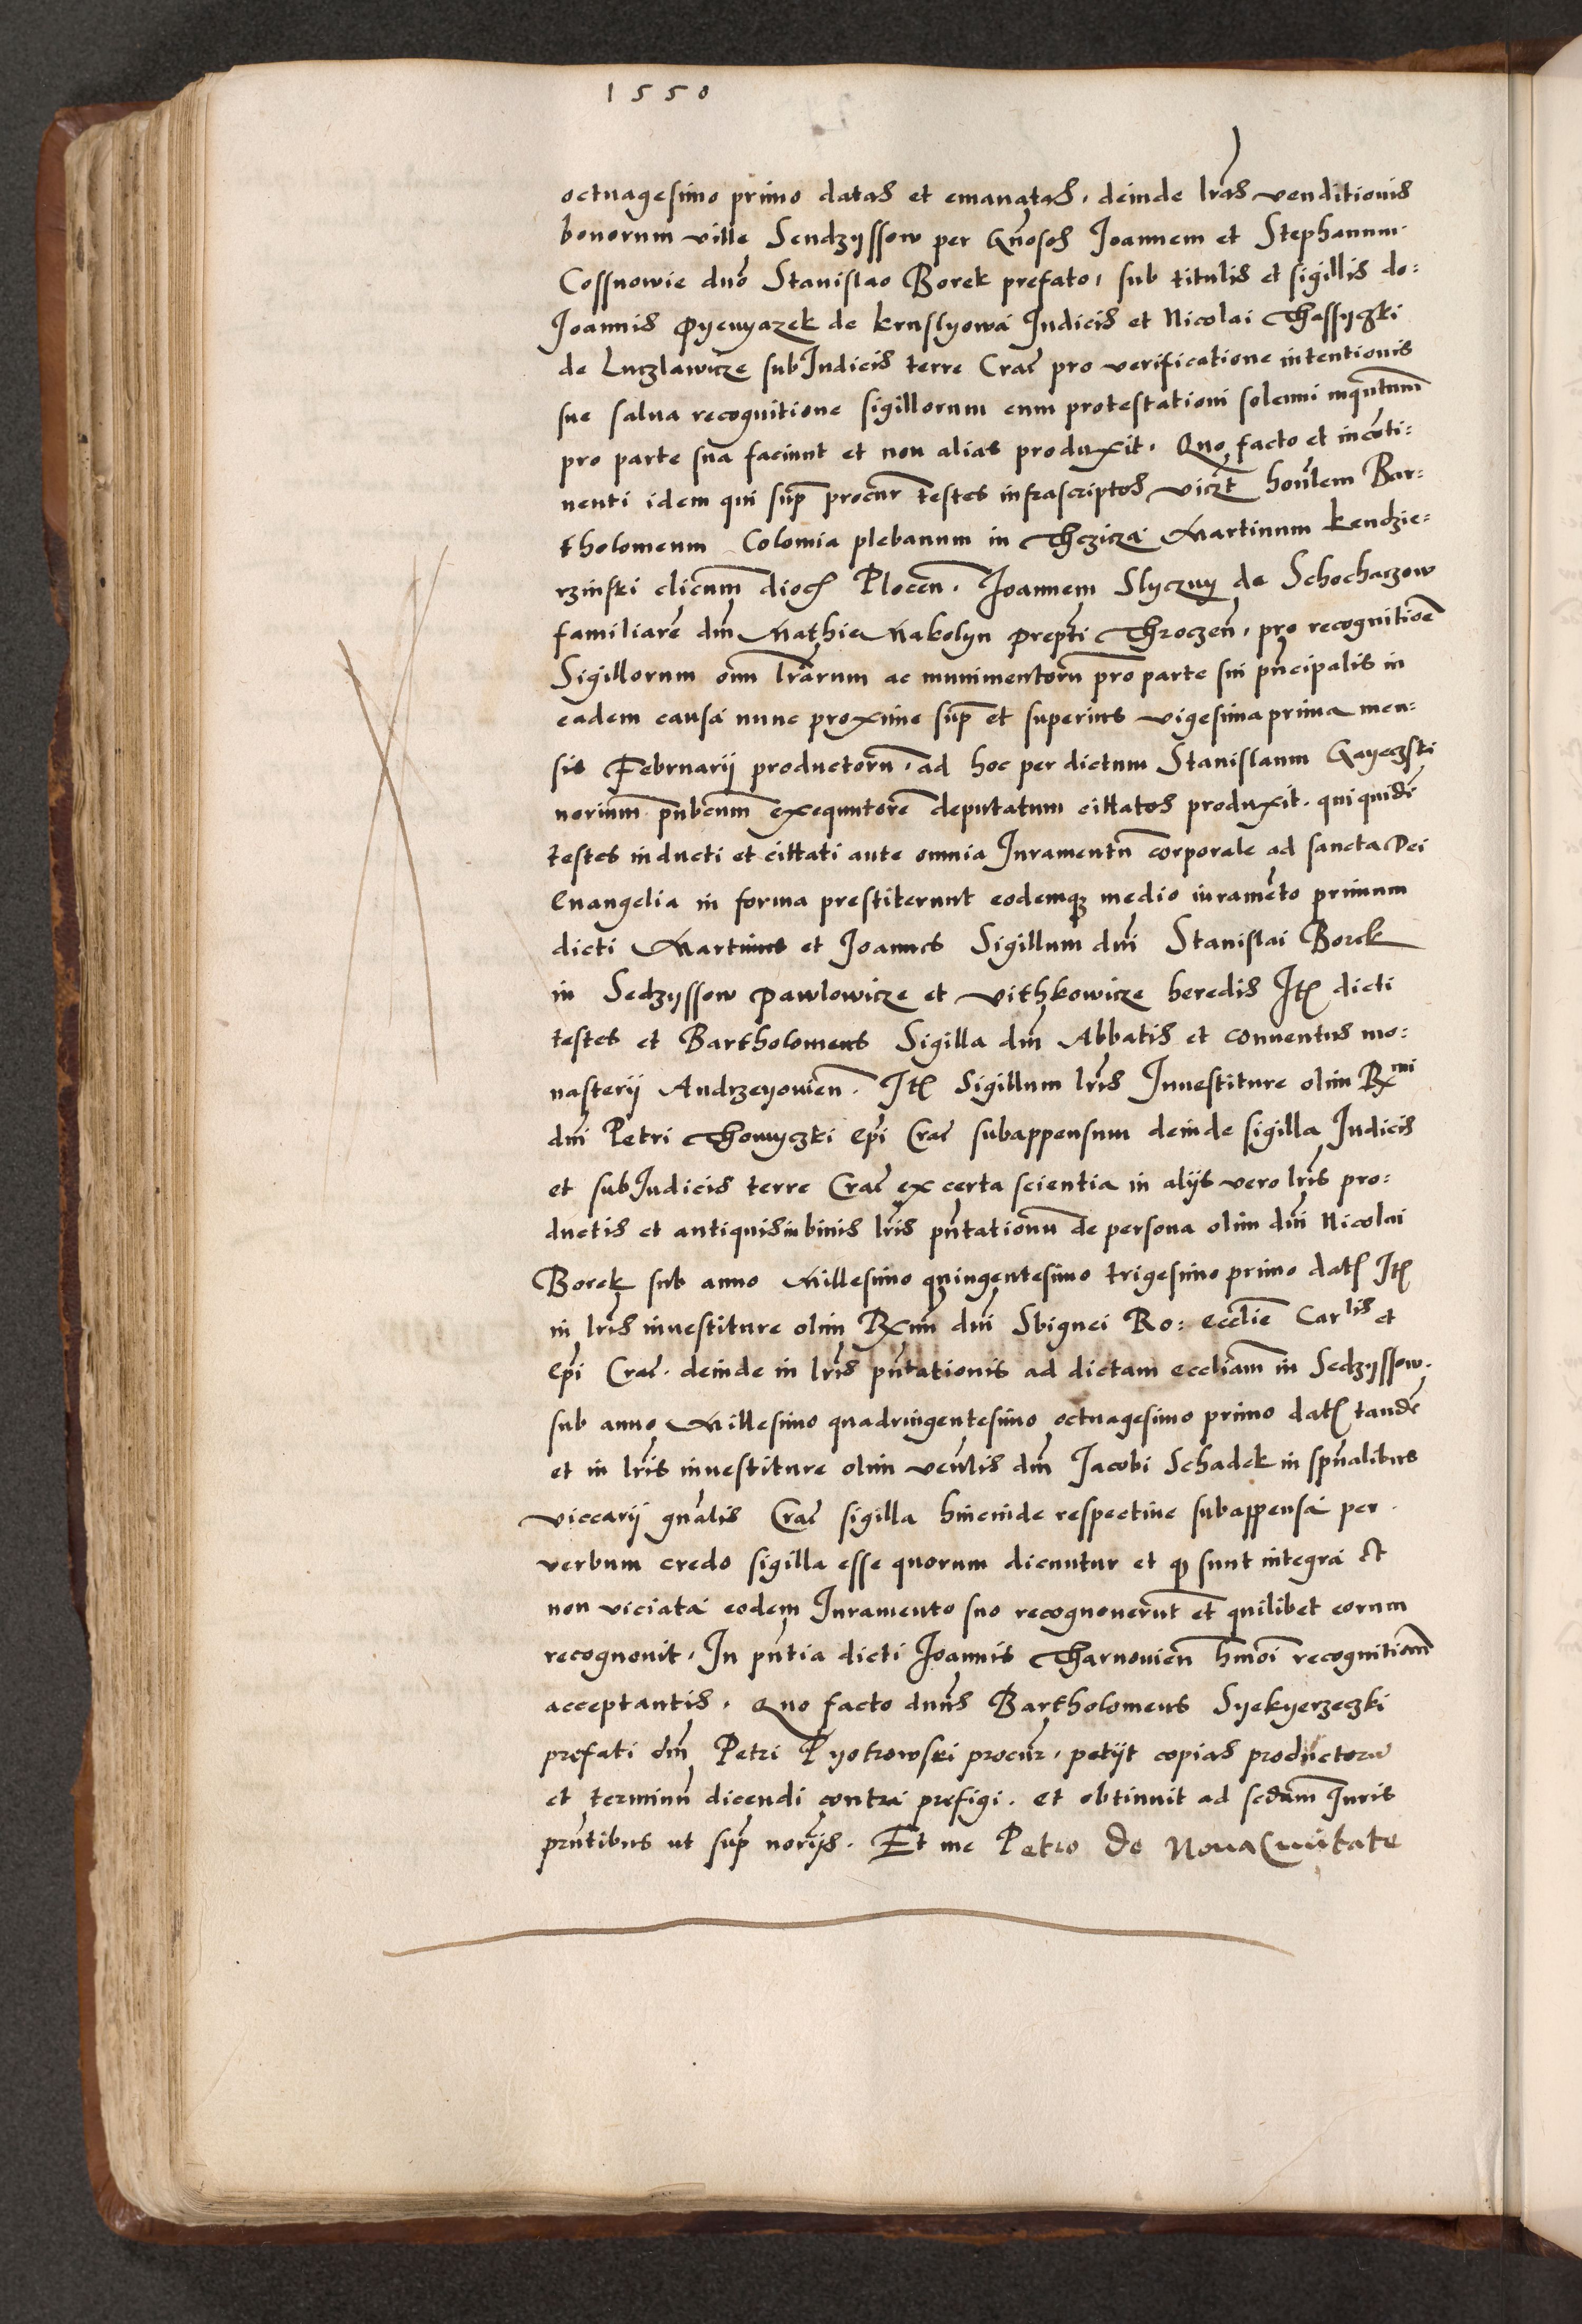 1550
octuagesimo primo datas et emanatas. deinde lras venditionis
bonorum ville Sendzyssow per Gnosos Joannem et Stephanum
Cossnowie duo Stanislao Borek prefato, sub titulis et sigillis do:
Joannis Pyenyazek de Kruslyowa Judicis et Nicolai Thassyczki
de Luczlawicze subJudicis terre Crac pro verificatione intentionis
sue salua recognitione sigillorum cum protestationi solenni inquntum
pro parte sua faciunt et non alias produxit. Quo facto et incoti:
nenti idem qui sup procur testes infrascriptos viczt honlem Bar:
tholomeum Colomia plebanum in Thczicza Martinum Kendzie:
rzinski clicum dioc Plocen. Joannem Slyczny de Schochaczow
familiare dni Mathie Makolyn prepti Throczen, pro recognitioe
Sigillorum oim lrarum ac munimentoru pro parte sui pncipalis in
eadem causa nunc proxime sup et superius vigesima prima men:
sis Februarij productoru, ad hoc per dictum Stanislaum Gayeczski
norium pubcum exequutore deputatum cittatos produxit. qui quide
testes inducti et cittati ante omnia Juramentu corporale ad sancta Dei
Euangelia in forma prestiterunt eodemq3 medio iurameto primum
dicti Martinus et Joannes Sigillum dni Stanislai Borek
in Sedzyssow Pawlowicze et Vithkowicze heredis Ite dicti
testes et Bartholomeus Sigilla dni Abbatis et conuentus mo:
nasterij Andrzeyouien. Ite Sigillum lris Inuestiture olim Rmi
dni Petri Thomyczki Epi Crac subappensum deinde sigilla Judicis
et subJudicis terre Crac ex certa scientia in alijs vero lris pro:
ductis et antiquis in binis lris pntationu de persona olim dni Nicolai
Borek sub anno Millesimo quingentesimo trigesimo primo dat Ite
in lris inuestiture olim Rxmi dni Sbignei Ro: Ecclie Carlis et
Epi Crac. deinde in lris pntationis ad dictam eccliam in Sedzyssow.
sub anno Millesimo quadringentesimo octuagesimo primo dat tande
et in lris inuestiture olim venlis dni Jacobi Schadek in spualibus
viccarij gnalis Crac sigilla hincinde respectiue subappensa per
verbum credo sigilla esse quorum dicuntur et q sunt integra et
non viciata eodem Juramento suo recognouerut et quilibet eorum
recognouit. In pntia dicti Joannis Tharnouien hmoi recognitiom
acceptantis. Quo facto duns Bartholomeus Syekyerzeczki
prefati dni Petri Pyotrowski procur. petijt copias productoru
et terminu dicendi contra prefigi. et obtinuit ad sedam Juris
pntibus ut sup norijs. Et me Petro de Noua Ciuitate